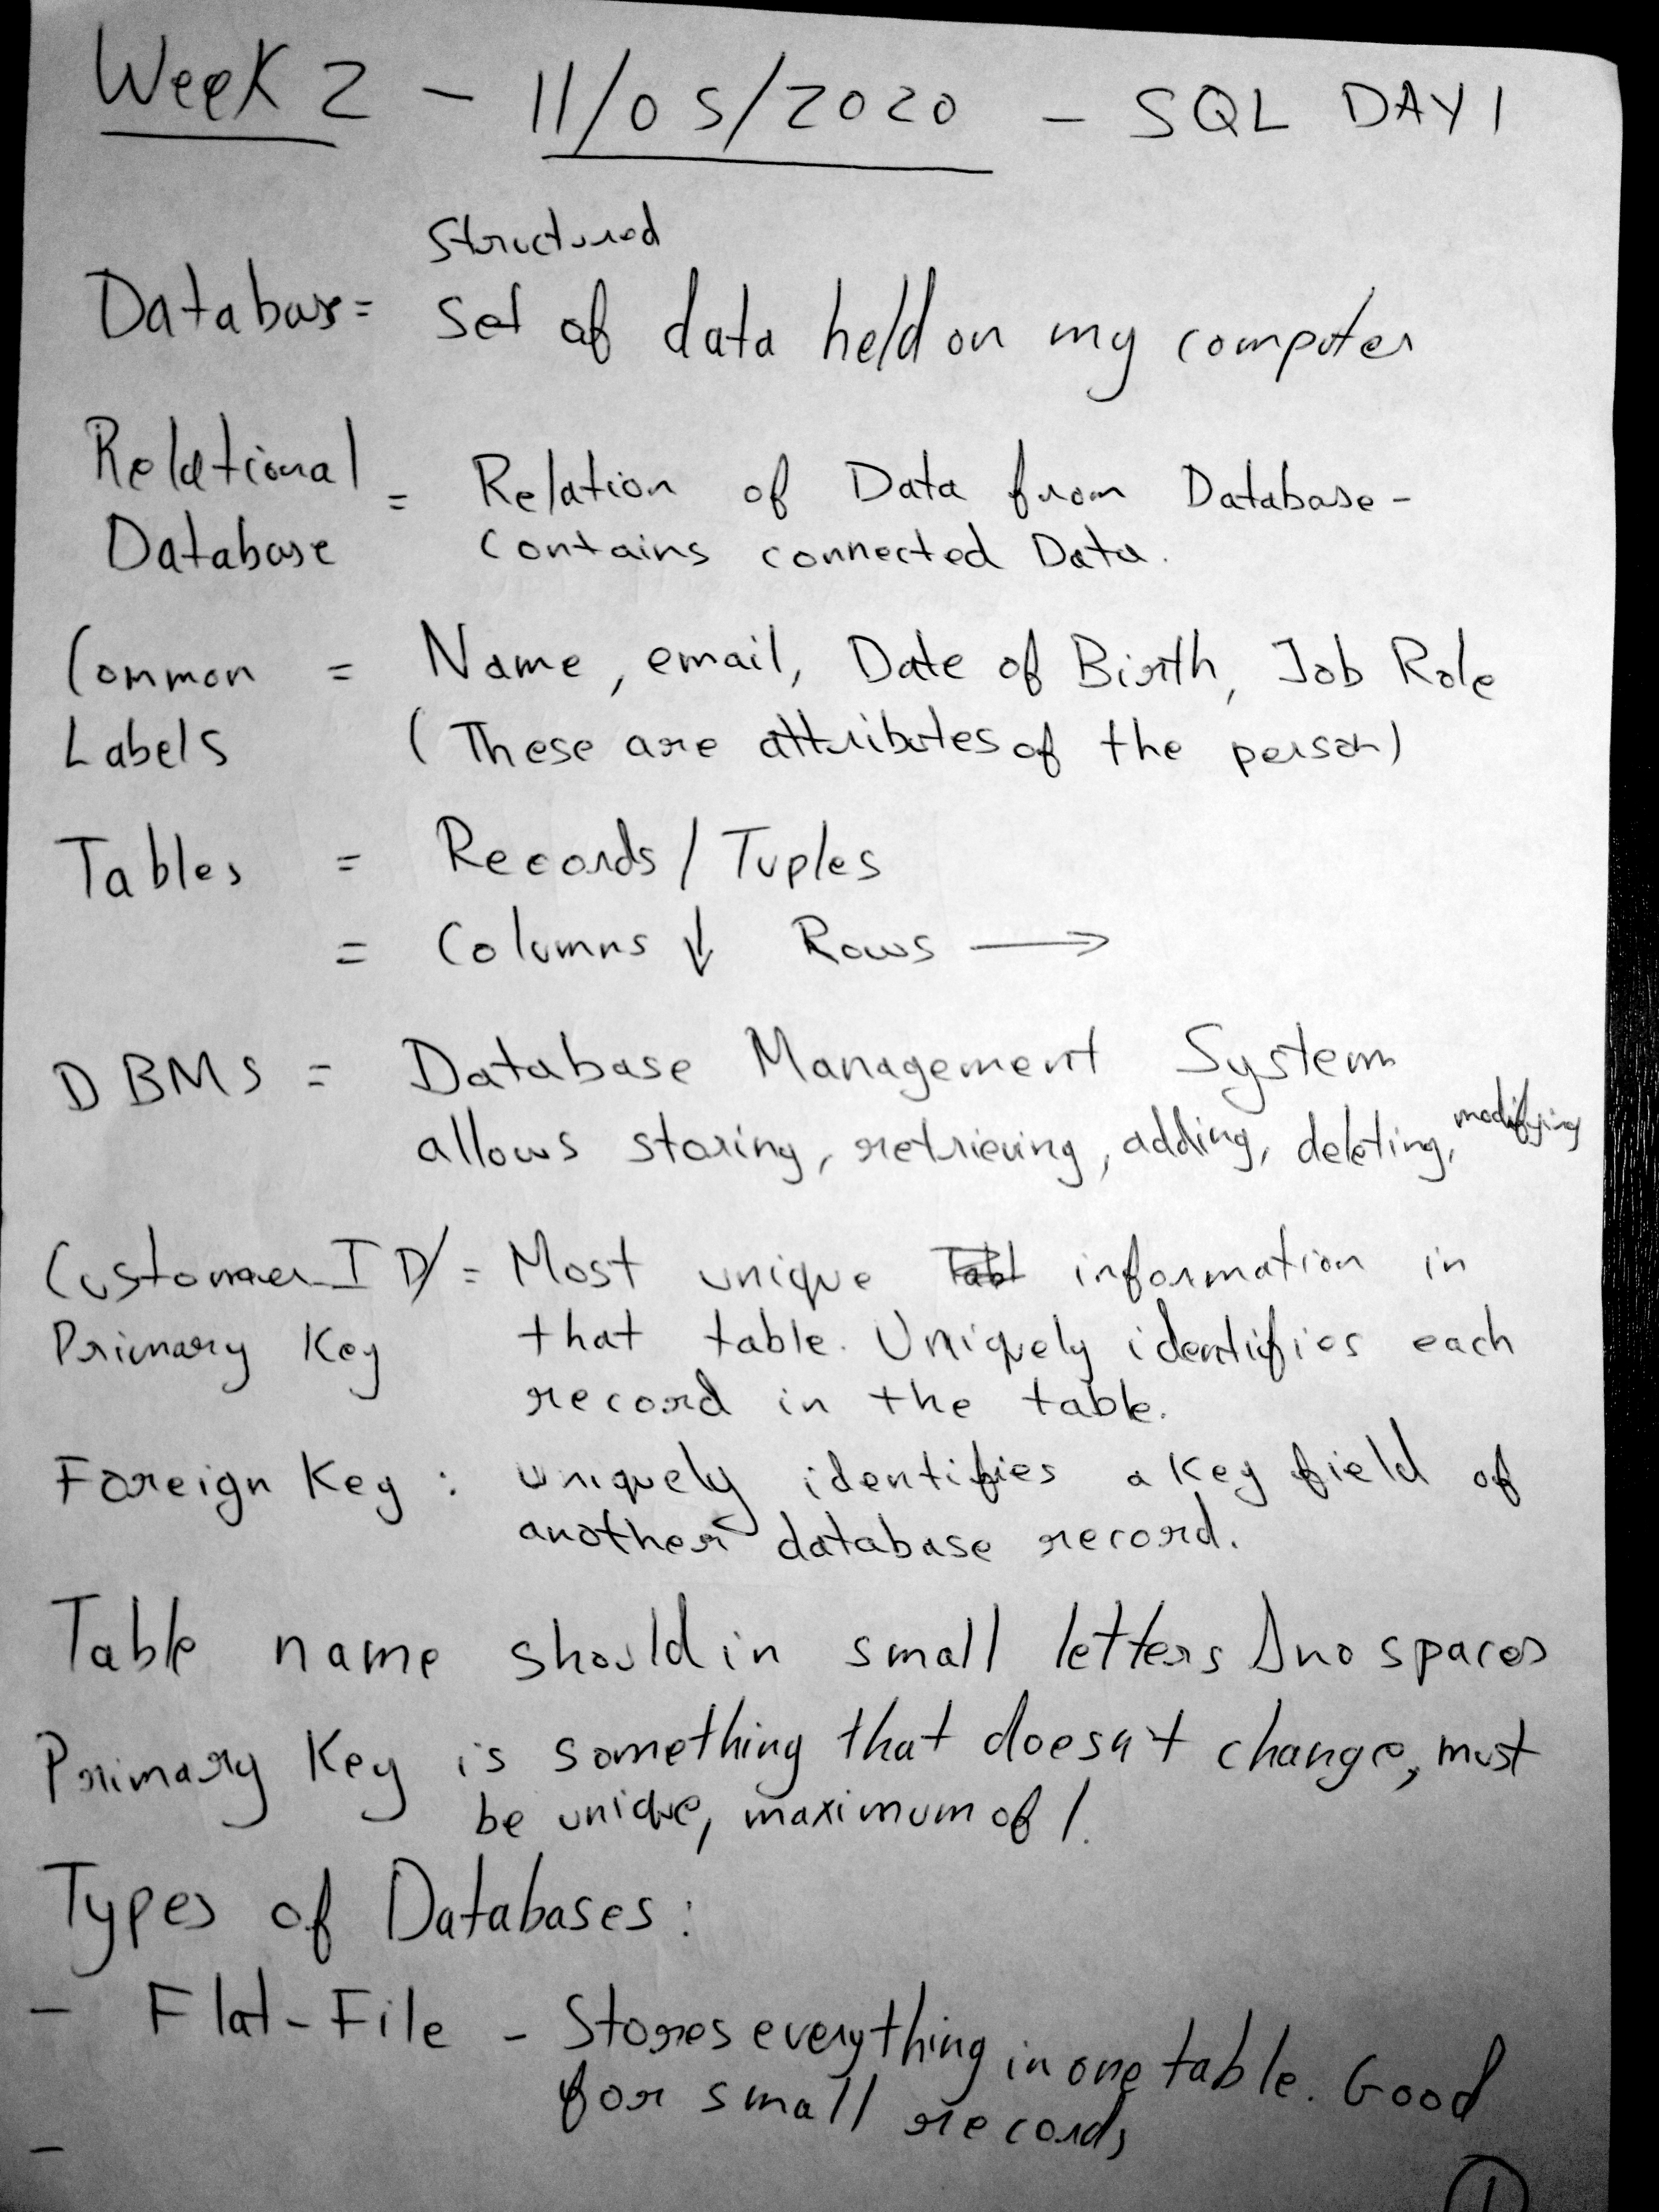 Week 2 - 11/05/2020 - SQL DAY 1
Structured
Database = Set of data held on my computer
Relational = Relation of Data from Database -
Database contains connected Data.
Common = Name, email, Date of Birth, Job Role
Labels (These are attributes of the person)
Tables = Records / Tuples
= Columns ↓ Rows →
DBMS = Database Management System
allows storing, retrieving, adding, deleting, modifying
Customer ID/ = Most unique information in
Primary Key that table. Uniquely identifies each
record in the table.
Foreign Key : uniquely identifies a key field of
another database record.
Table name should in small letters & no spaces
Primary Key is something that doesn't change, must
be unique, maximum of 1.
Types of Databases:
- Flat-File - Stores everything in one table. Good
for small records
-
1